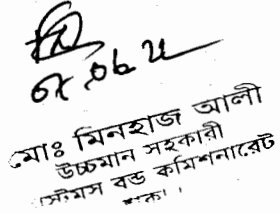 মোঃ মিনহাজ আলী
উচ্চমান সহকারী
কাস্টমস বন্ড কমিশনারেট
ঢাকা।